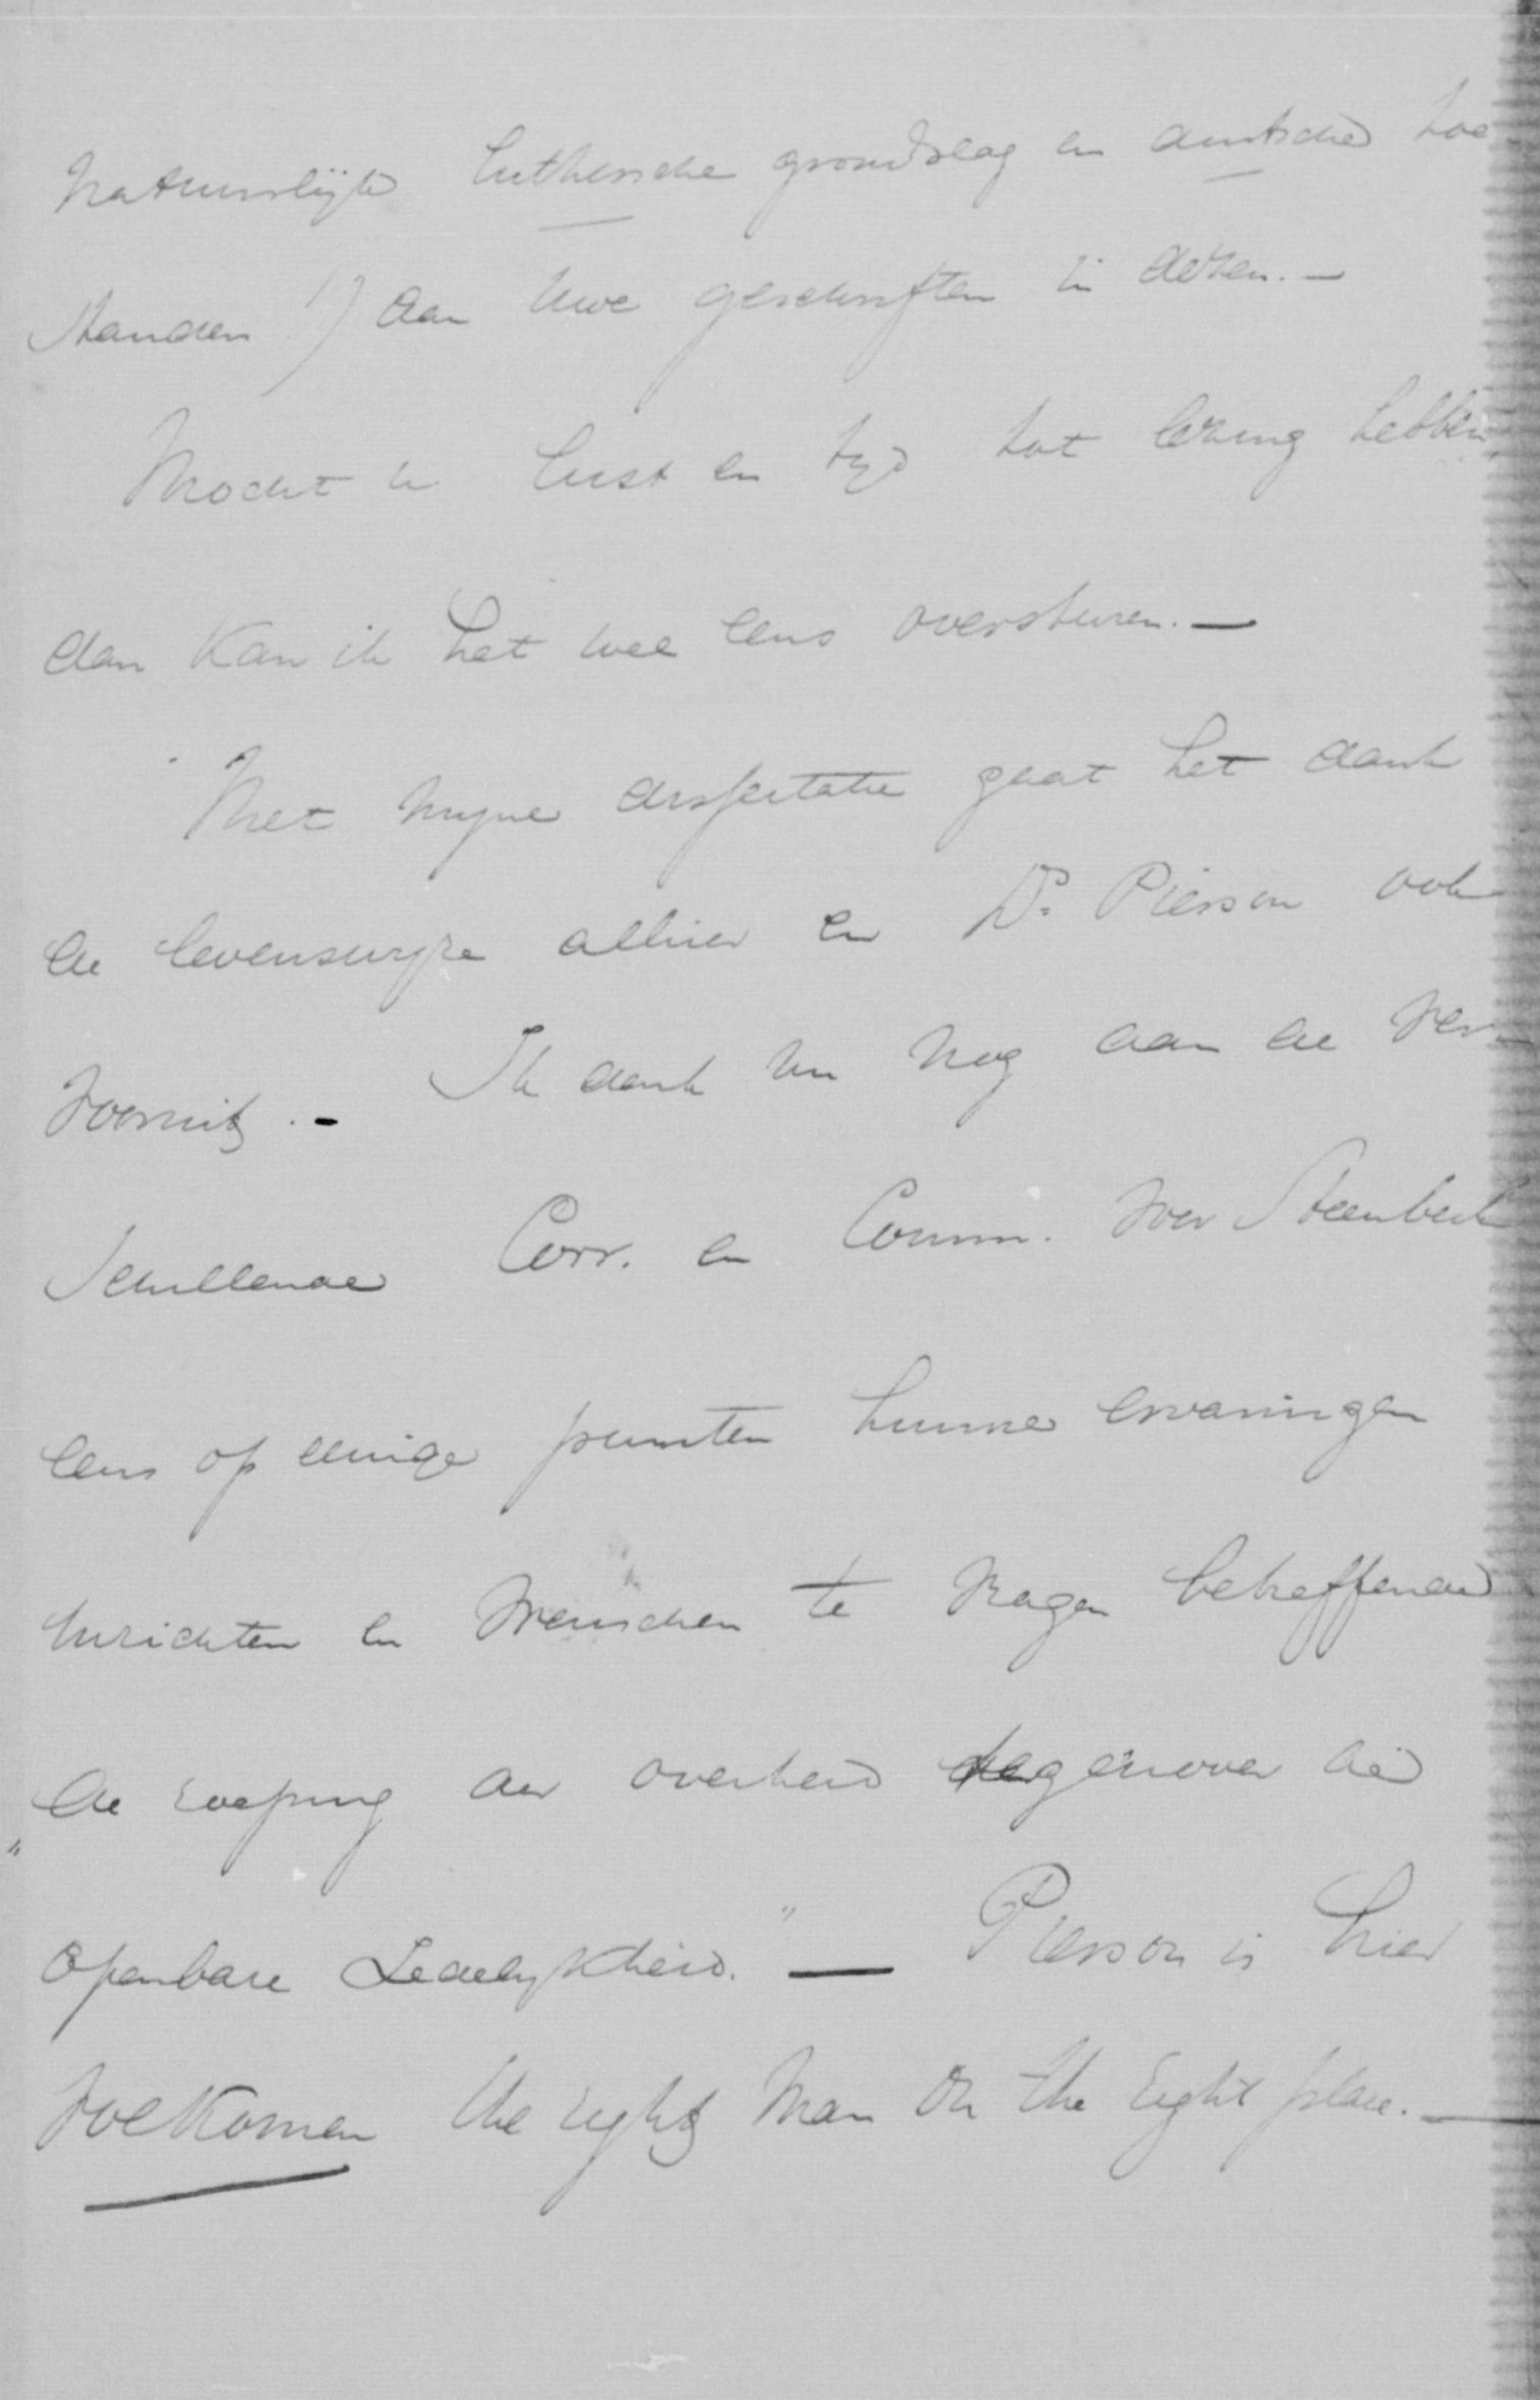 natuurlijk luthersche grondslag en duitsche toe-
standen!) aan Uwe geschriften in dezen. —
Mocht u lust en tijd tot lezing hebben,
dan kan ik het wel eens oversturen. —
Met mijne dissertatie gaat het dank
de levenswijze alhier en Ds. Pierson ook
vooruit. - Ik denk nu nog aan de ver-
schillende Corr. en Comm. voor Steenbeek
eens op eenige punten hunne ervaringen
inzichten en wenschen te vragen betreffende
„de roeping der overheid tegenover de
openbare Zedelijkheid." — Pierson is hier
volkomen the right man on the right place. —